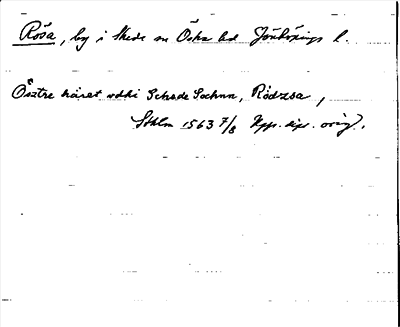 Rösa, by i Skede sn Östra hd Jönköpings l.
Östre häret wdhi Schede Sochnn, Rödzsa,
Sthlm 1563 7/8 Upps. dipl. orig.